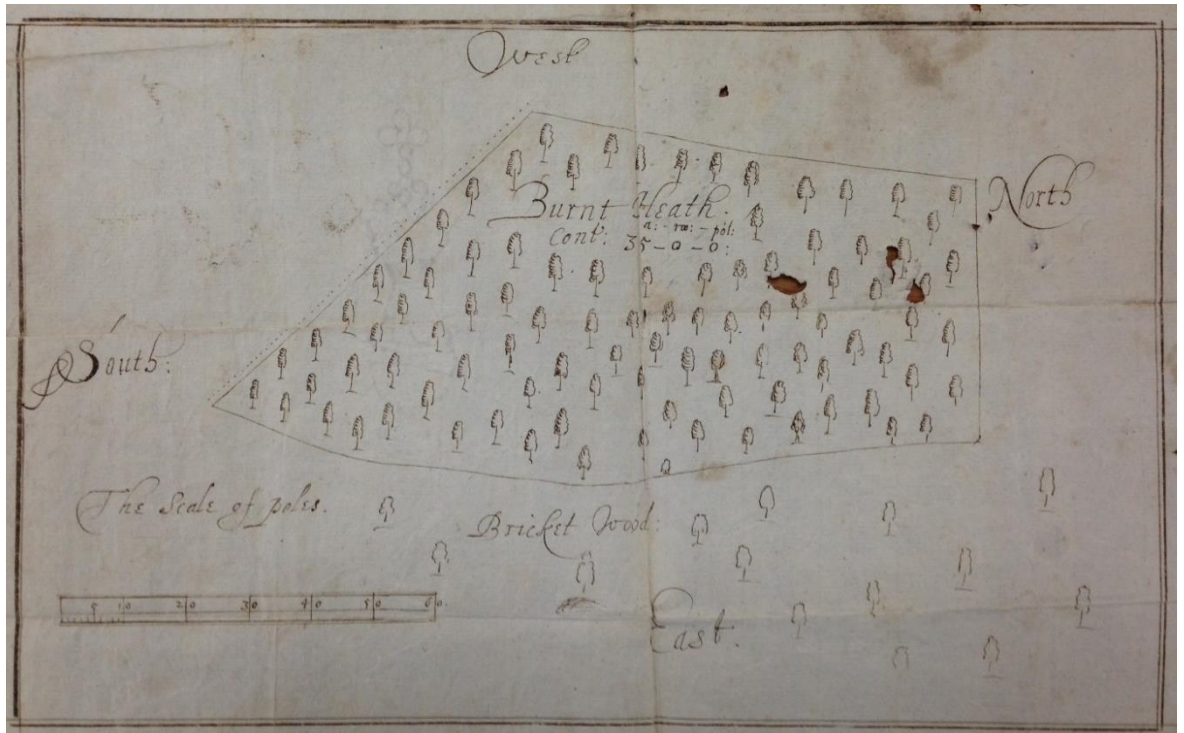 West
North
Burnt Heath.
a: - ro: - pol:
Cont: 35 - 0 - 0:
South:
The Scale of poles.
Bricket Wood:
5 10 20 30 40 50 60
East.